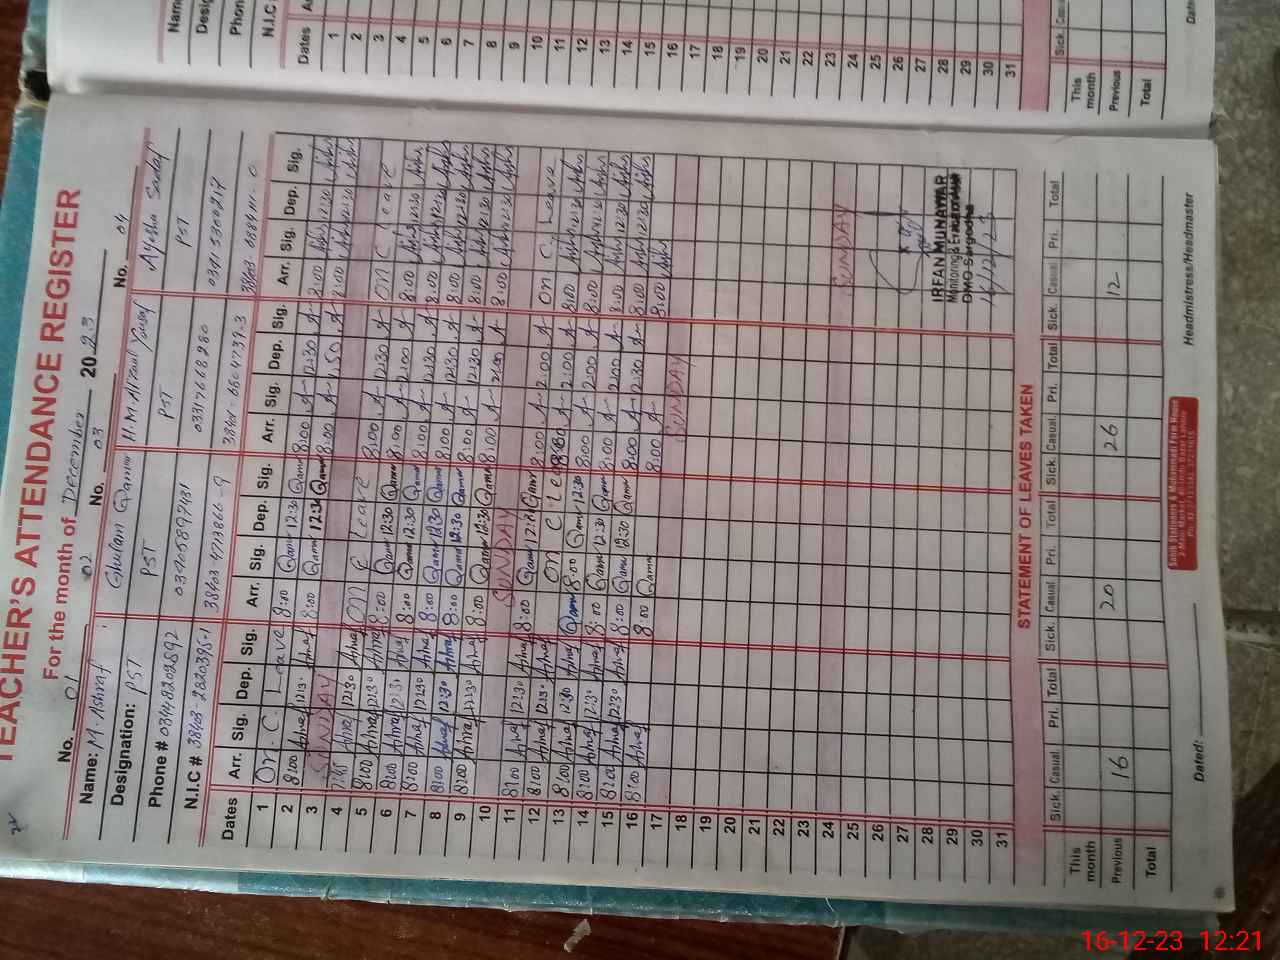 TEACHER'S ATTENDANCE REGISTER
For the month of December 2023
No. 01 02 No. 03 No. 04
Name: M. Ashraf Ghulam Qamar M.M. Afzaal Yousaf Ayesha Sadaf
Designation: PST PST PST PST
Phone # 03448202892 03405897481 03317668280
N.I.C #
Dates Arr. Sig. Dep. Sig. Arr. Sig. Dep. Sig. Arr. Sig. Dep. Sig. Arr. Sig. Dep. Sig.
1 On C. Leave 8:00 Qamar 12:30 Qamar 8:00 12:30 8:00 12:30
2 8:00 Ashraf 12:30 Ashraf 8:00 Qamar 12:30 Qamar 8:00 1:50 8:00 12:30
3 SUNDAY
4 7:45 Ashraf 12:30 Ashraf On C Leave 8:00 12:30 On C Leave
5 8:00 Ashraf 12:30 Ashraf 8:00 Qamar 12:30 Qamar 8:00 2:00 8:00 12:30
6 8:00 Ashraf 12:30 Ashraf 8:00 Qamar 12:30 Qamar 8:00 12:30 8:00 12:30
7 8:00 Ashraf 12:30 Ashraf 8:00 Qamar 12:30 Qamar 8:00 12:30 8:00 12:30
8 8:00 Ashraf 12:30 Ashraf 8:00 Qamar 12:30 Qamar 8:00 12:30 8:00 12:30
9 8:00 Ashraf 12:30 Ashraf 8:00 Qamar 12:30 Qamar 8:00 2:00 8:00 12:30
10 SUNDAY
11 8:00 Ashraf 12:30 Ashraf 8:00 Qamar Qamar 8:00 2:00 On C. Leave
12 8:00 Ashraf 12:30 Ashraf On C Leave 8:00 2:00 8:00 12:30
13 8:00 Ashraf 12:30 Ashraf Qamar 8:00 Qamar 12:30 8:00 2:00 8:00 12:30
14 8:00 Ashraf 12:30 Ashraf 8:00 Qamar 12:30 Qamar 8:00 2:00 8:00 12:30
15 8:00 Ashraf 12:30 Ashraf 8:00 Qamar 12:30 Qamar 8:00 12:30 8:00 12:30
16 8:00 Ashraf 8:00 Qamar 8:00 8:00
17 SUNDAY
18
19
20
21
22
23
24 SUNDAY
25
26
27
28 IRFAN MUNAWAR
29 Monitoring &
DMO Sargodha
30 16/12/23
31
STATEMENT OF LEAVES TAKEN
Sick. Casual Pri. Total Sick. Casual Pri. Total Sick. Casual Pri. Total Sick. Casual Pri. Total
This month
Previous 16 20 26 12
Total
Dated: Headmistress/Headmaster
Dates
1
2
3
4
5
6
7
8
9
10
11
12
13
14
15
16
17
18
19
20
21
22
23
24
25
26
27
28
29
30
31
This month
Previous
Total
16-12-23 12:21